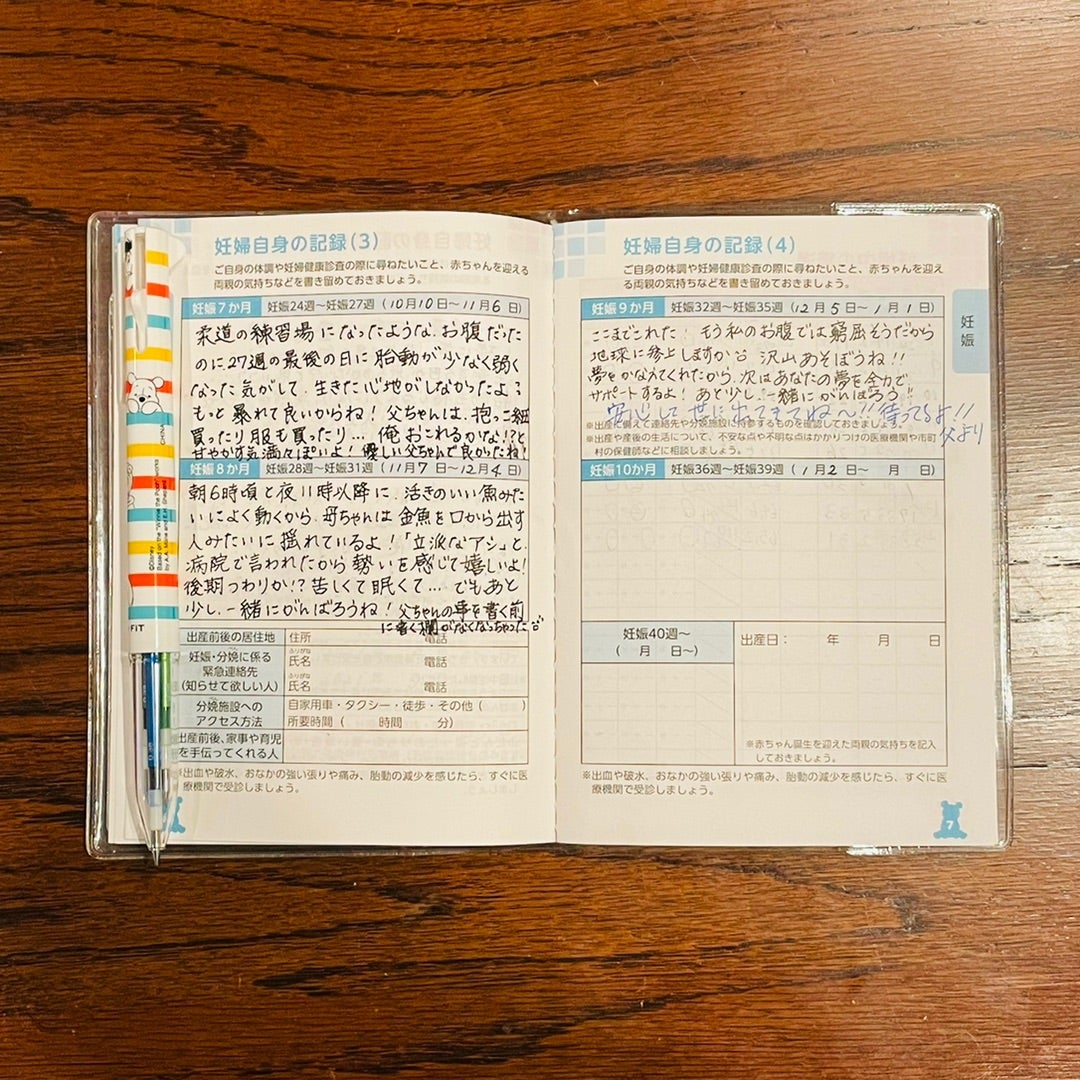 妊婦自身の記録(3)
ご自身の体調や妊婦健康診査の際に尋ねたいこと、赤ちゃんを迎え
る両親の気持ちなどを書き留めておきましょう。
妊娠7か月 妊娠24週～妊娠27週 (10月10日～11月6日)
柔道の練習場になったような、お腹だった
のに27週の最後の日に胎動が少なく弱く
なった気がして、生きた心地がしなかったよ
もっと暴れて良いからね！父ちゃんは、抱っこ紐
買ったり服も買ったり…俺おこれるかな!?と
甘やかす気満々ぽいよ！優しい父ちゃんで良かったね！
妊娠8か月 妊娠28週～妊娠31週 (11月7日～12月4日)
朝6時頃と夜11時以降に、活きのいい魚みた
いによく動くから、母ちゃんは金魚を口から出す
人みたいに揺れているよ！「立派なアシ」と、
病院で言われたから勢いを感じて嬉しいよ！
後期つわりか!?苦しくて眠くて…でもあと
少し、一緒にがんばろうね！父ちゃんの事を書く前
に書く欄がなくなっちゃった
出産前後の居住地 住所 電話
妊娠・分娩に係る 緊急連絡先 (知らせて欲しい人)
ふりがな
氏名 電話
ふりがな
氏名 電話
分娩施設への アクセス方法
自家用車・タクシー・徒歩・その他( )
所要時間( 時間 分)
出産前後、家事や育児
を手伝ってくれる人
※出血や破水、おなかの強い張りや痛み、胎動の減少を感じたら、すぐに医
療機関で受診しましょう。
©Disney
Based on the "Winnie the Pooh" works
by A.A. Milne and E.H. Shepard
妊婦自身の記録(4)
ご自身の体調や妊婦健康診査の際に尋ねたいこと、赤ちゃんを迎え
る両親の気持ちなどを書き留めておきましょう。
妊娠9か月 妊娠32週～妊娠35週 (12月5日～1月1日)
ここまでこれた！もう私のお腹では窮屈そうだから
地球に移上しますか 沢山あそぼうね!!
夢をかなえてくれたから、次はあなたの夢を全力で、
サポートするよ！あと少し、一緒にがんばろう!!
安心して世に出てきてね～!!待ってるよ!!
父より
※出産に備えて連絡先や分娩施設に持参するものを確認しておきましょう。
※出産や産後の生活について、不安な点や不明な点はかかりつけの医療機関や市町
村の保健師などに相談しましょう。
妊娠10か月 妊娠36週～妊娠39週 (1月2日～ 月 日)
妊娠40週～
( 月 日～)
出産日： 年 月 日
※赤ちゃん誕生を迎えた両親の気持ちを記入
しておきましょう。
※出血や破水、おなかの強い張りや痛み、胎動の減少を感じたら、すぐに医
療機関で受診しましょう。
妊娠
7